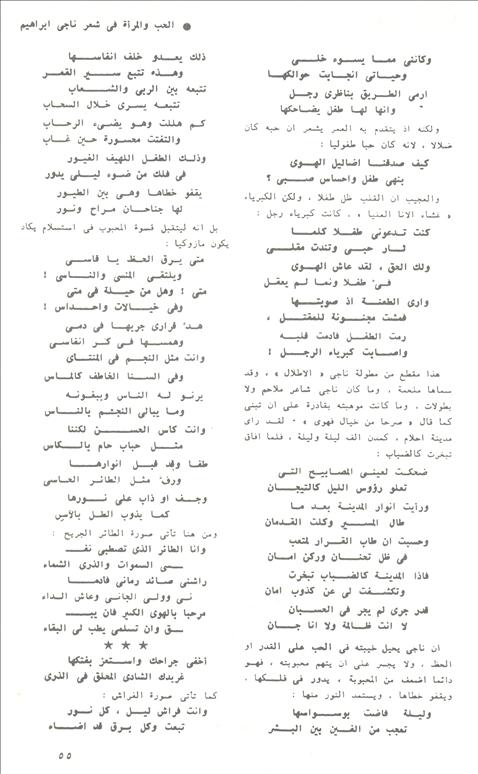 ● الحب والمرأة في شعر ناجي ابراهيم
وكأننى ممـا يسـوء خلـى
وحيـاتى انجـابت حوالكهـا
ارمى الطريق بناظرى رجـل
وانها لهـا طفل يضـاحكها
ولكنه اذ يتقدم به العمر يشعر ان حبه كان
ضلالا ، لانه كان حبا طفوليا :
كيف صدقنـا اضاليل الهـوى
بنهى طفل واحساس صـبى ؟
والعجيب ان القلب ظل طفلا ، ولكن الكبرياء
« غشاء الانا العنيا » ، كانت كبرياء رجل :
كنت تدعونى طفـلا كلمـا
ثـار حبـى وتندت مقلـى
ولك الحق ، لقد عاش الهـوى
فى طفـلا ونمـا لـم يعقـل
وارى الطعنـة اذ صوبتهـا
فمشت مجنـونة للمقتـل ،
رمت الطفـل فادمت قلبـه
واصـابت كبرياء الرجـل !
هذا مقطع من مطولة ناجى « الاطلال » ، وقد
سماها ملحمة ، وما كان ناجى شاعر ملاحم ولا
بطولات ، وما كانت موهبته بقادرة على ان تبنى
كما قال « صرحا من خيال فهوى » . لقد راى
مدينة احلام ، كمدن الف ليلة وليلة ، فلما افاق
تبخرت كالضباب :
ضحكت لعينى المصابيح التى
تعلو رؤوس الليل كالتيجـان
ورأيت انوار المدينة بعـد ما
طال المسـير وكلت القدمـان
وحسبت ان طاب القـرار لمتعب
فى ظل تحنـان وركن امـان
فاذا المدينـة كالضباب تبخرت
وتكشفـت لى عن كذوب امان
قدر جرى لم يجر فى الحسبـان
لا انت ظـالمة ولا انا جـان
ان ناجى يحيل خيبته فى الحب على القدر او
الحظ ، ولا يجسر على ان يتهم محبوبته ، فهـو
دائما اضعف من المحبوبة ، يدور فى فلـكها ،
ويقفو خطاها ، ويستمد النور منها :
وليلـة فاضت بوسـواسهـا
تعجب من الفـين بين البشـر
ذلك يعـدو خلف انفاسـها
وهـذه تتبع سـير القمـر
تتبعه بين الربى والشـعاب
تتبعـه يسرى خلال السحاب
كـم هللت وهـو يضىء الرحـاب
والتفتت محسورة حـين غـاب
وذلـك الطفـل اللهيف الغيـور
فى فلك من ضوء ليـلى يدور
يقفو خطاهـا وهـى بين الطيـور
لها جناحـان مـراح ونور
بل انه ليتقبل قسوة المحبوب فى استسلام يكاد
يكون مازوكيا :
متى يـرق الحظ يا قاسـى
ويلتقـى المنسى والنـاسى !
متى ! وهل من حيـلة فى متى
وفى خيـالات واحـداس !
هـد قرارى جريهـا فى دمـى
وهمسـها فى كـر انفاسى
وانت مثل النجـم فى المنتـاى
وفى السـنا الخاطف كالمـاس
يرنو له النـاس ويبغـونه
وما يبالى النجـم بالنـاس
وانت كأس الحسـن لكننـا
مثـل حباب حام بالـكاس
طفـا وقد قبـل انوارهـا
ورف مثـل الطائر الحـاسى
وجـف او ذاب على نـورها
كمـا يذوب الطـل بالآس
ومن هنـا تأتى صورة الطائر الجريح :
وانا الطائر الذى تصطبى نفـ
ـسى السموات والذرى الشماء
راشنى صـائد رمانى فادمـا
نـى وولى الجانى وعاش الـداء
مرحبا بالهوى الكبير فان يبـ
ـق وان تسلمى يطب لى البقاء
★ ★ ★
أخفى جراحـك واستعـز بفتكها
غريـدك الشادى المحلق فى الذرى
كما تأتى صورة الفراش :
وانت فراش ليـل ، كل نـور
تبعت وكل برق قد اضـاء
٥٥